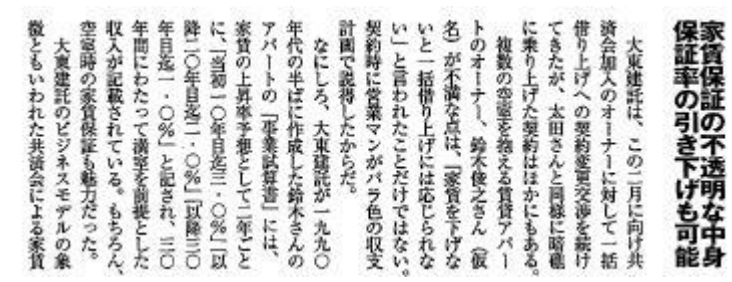 家賃保証の不透明な中身
保証率の引き下げも可能
大東建託は、この二月に向け共
済会加入のオーナーに対して一括
借り上げへの契約変更交渉を続け
てきたが、太田さんと同様に暗礁
に乗り上げた契約はほかにもある。
複数の空室を抱える賃貸アパー
トのオーナー、鈴木俊之さん（仮
名）が不満な点は、「家賃を下げな
いと一括借り上げには応じられな
い」と言われたことだけではない。
契約時に営業マンがバラ色の収支
計画で説得したからだ。
なにしろ、大東建託が一九九〇
年代の半ばに作成した鈴木さんの
アパートの「事業試算書」には、
家賃の上昇率予想として二年ごと
に、「当初一〇年目迄三・〇％」「以
降二〇年目迄二・〇％」「以降三〇
年目迄一・〇％」と記され、三〇
年間にわたって満室を前提とした
収入が記載されている。もちろん、
空室時の家賃保証も魅力だった。
大東建託のビジネスモデルの象
徴ともいわれた共済会による家賃